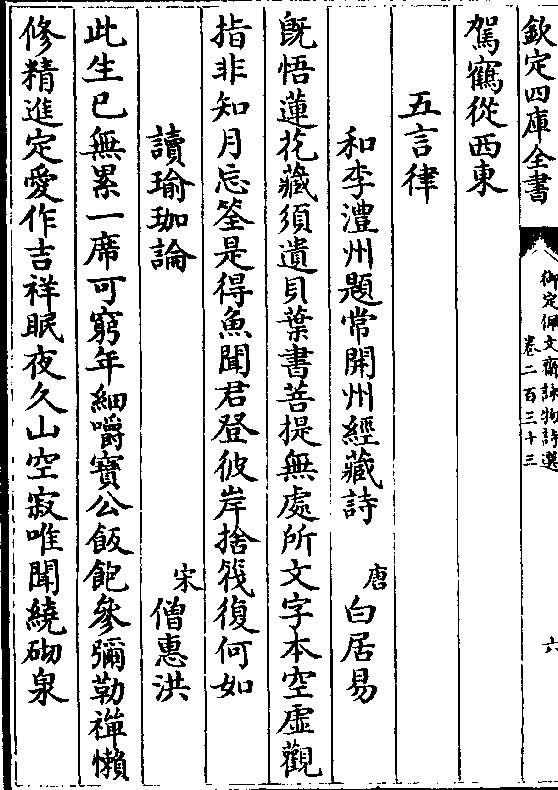 欽定四庫全書
御定佩文齋詠物詩選
卷二百三十三
六
駕鶴從西東
五言律
和李澧州題常開州經藏詩 唐 白居易
既悟蓮花藏須遺貝葉書菩提無處所文字本空虛觀
指非知月忘筌是得魚聞君登彼岸捨筏復何如
讀瑜珈論 宋 僧惠洪
此生已無累一席可窮年細嚼寶公飯飽參彌勒禪懶
修精進定愛作吉祥眠夜久山空寂唯聞繞砌泉